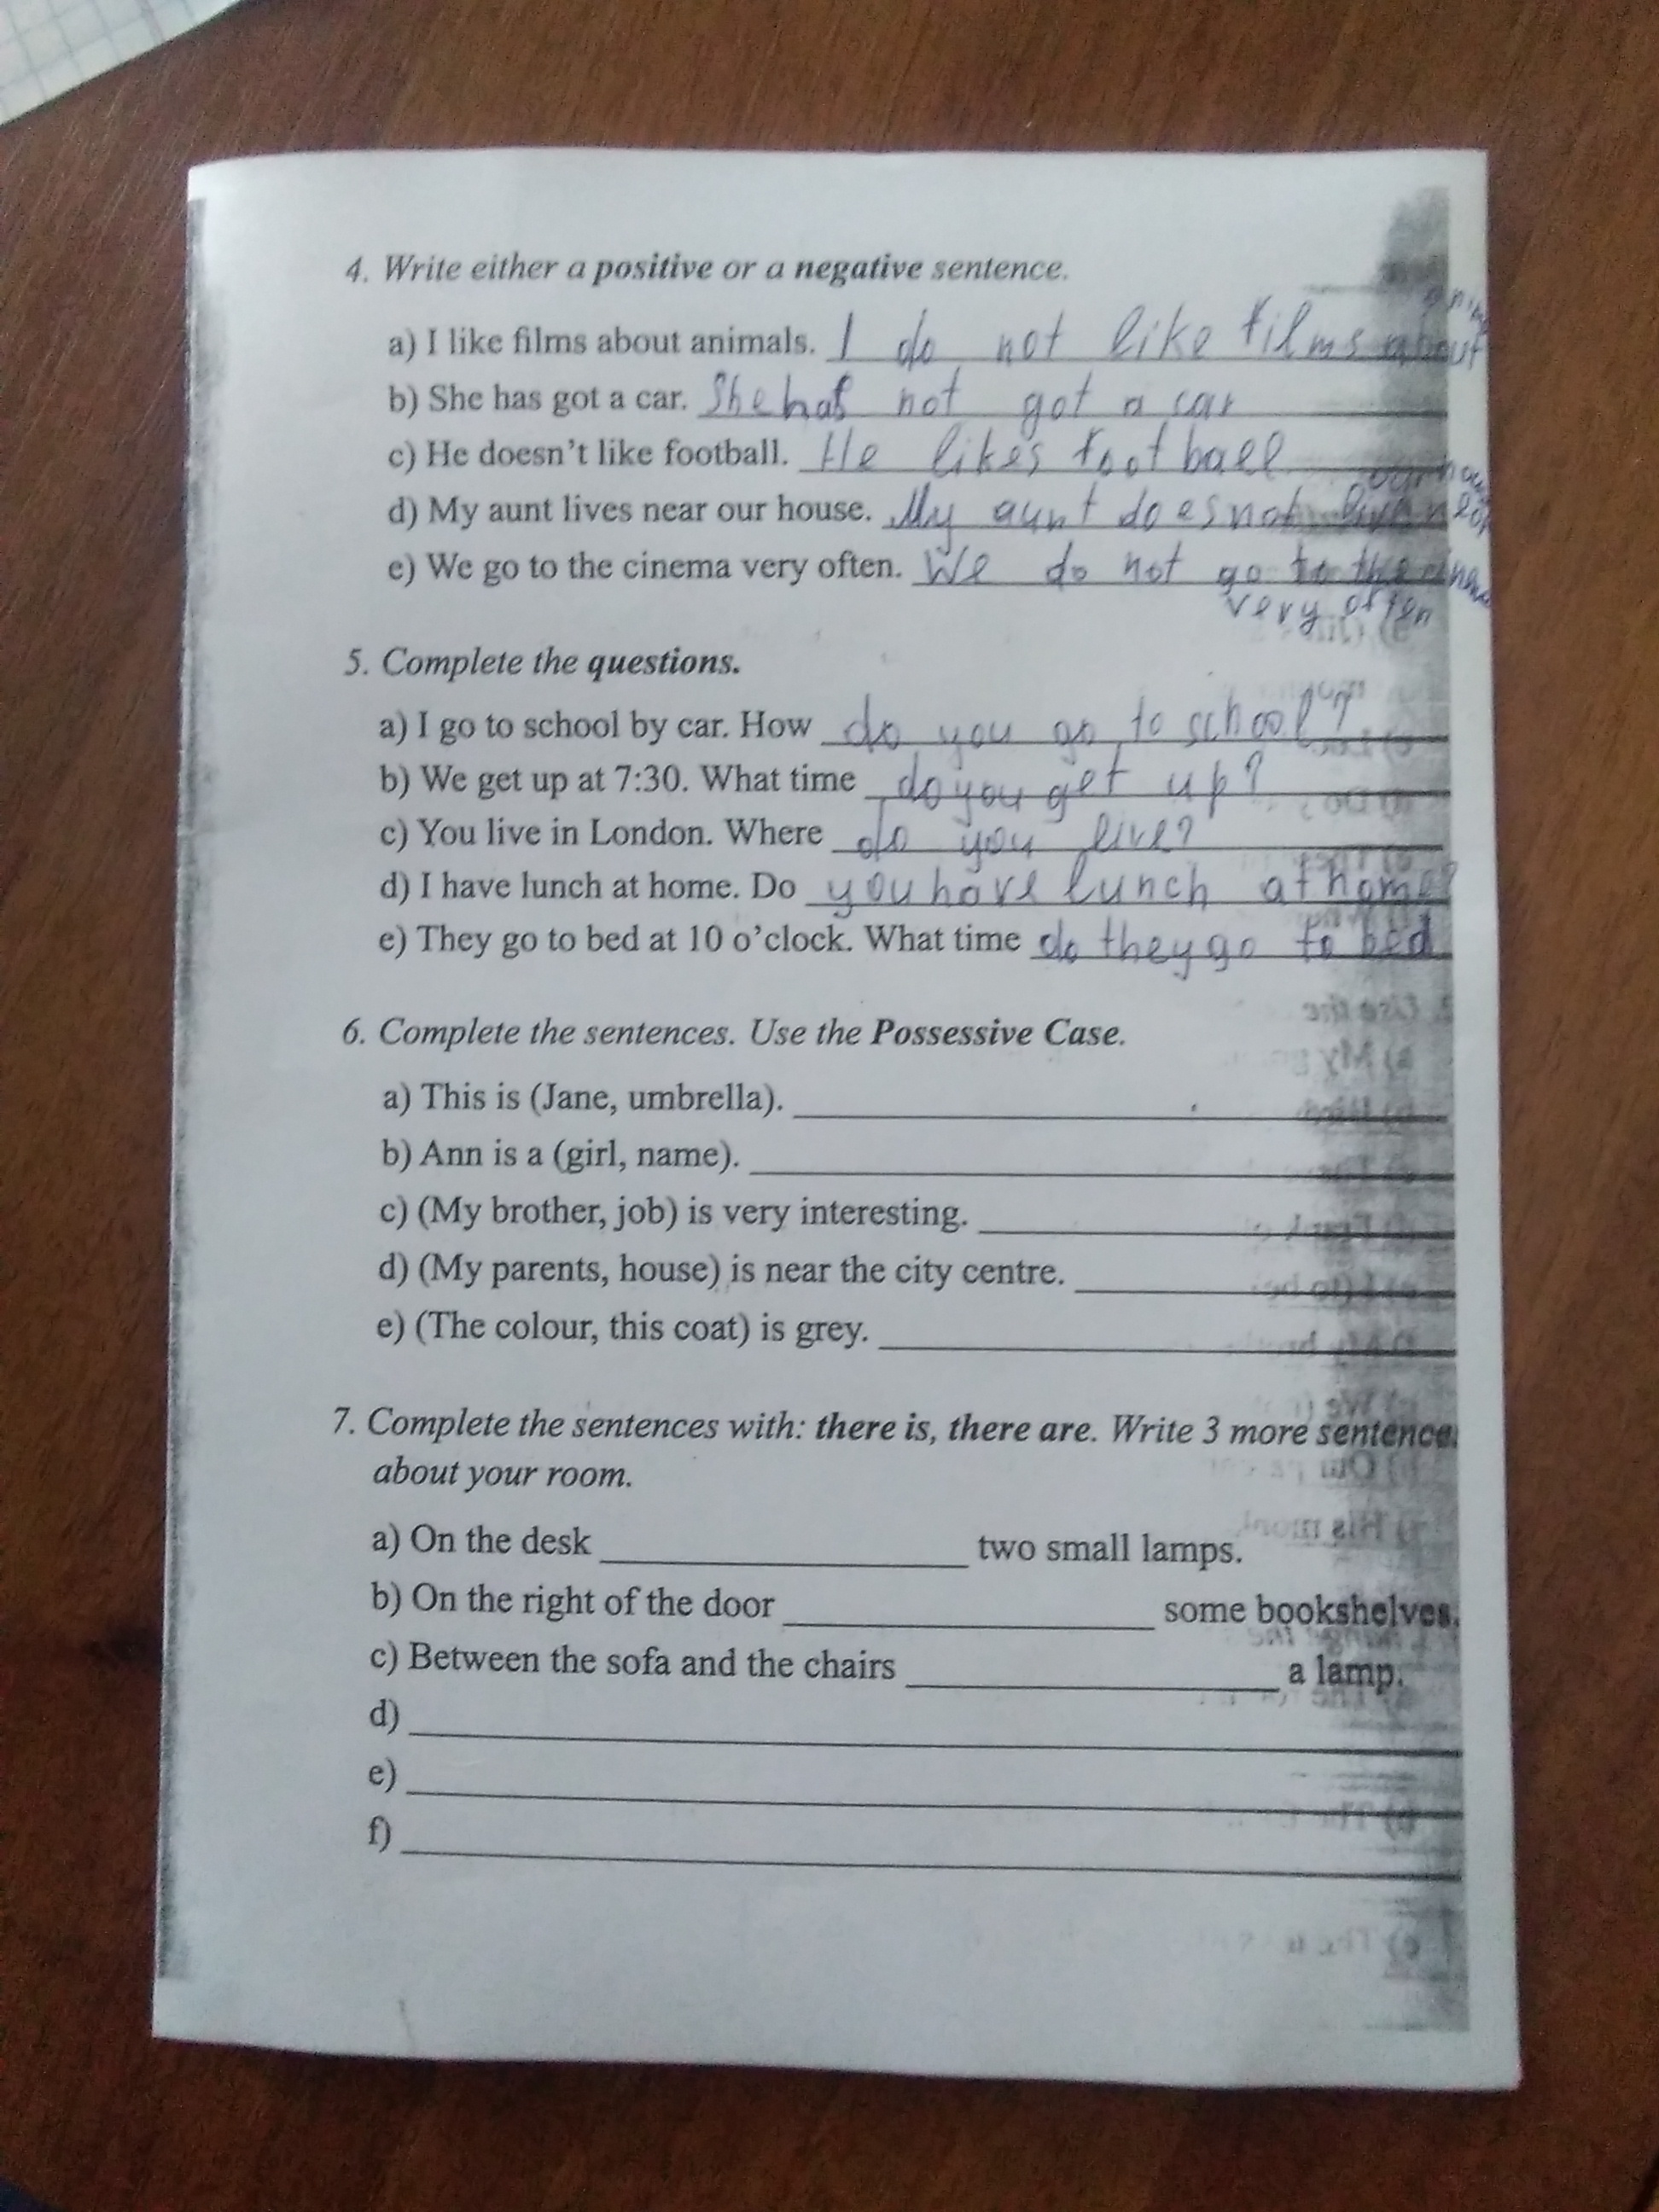 4. Write either a positive or a negative sentence.
a) I like films about animals. I do not like films about
b) She has got a car. She has not got a car
c) He doesn't like football. He likes football
our
d) My aunt lives near our house. My aunt does not live near
e) We go to the cinema very often. We do not go to the cinema
very often
5. Complete the questions.
a) I go to school by car. How do you go to school?
b) We get up at 7:30. What time do you get up?
c) You live in London. Where do you live?
d) I have lunch at home. Do you have lunch at home?
e) They go to bed at 10 o'clock. What time do they go to bed
6. Complete the sentences. Use the Possessive Case.
a) This is (Jane, umbrella).
b) Ann is a (girl, name).
c) (My brother, job) is very interesting.
d) (My parents, house) is near the city centre.
e) (The colour, this coat) is grey.
7. Complete the sentences with: there is, there are. Write 3 more sentence
about your room.
a) On the desk two small lamps.
b) On the right of the door some bookshelves.
c) Between the sofa and the chairs a lamp.
d)
e)
f)